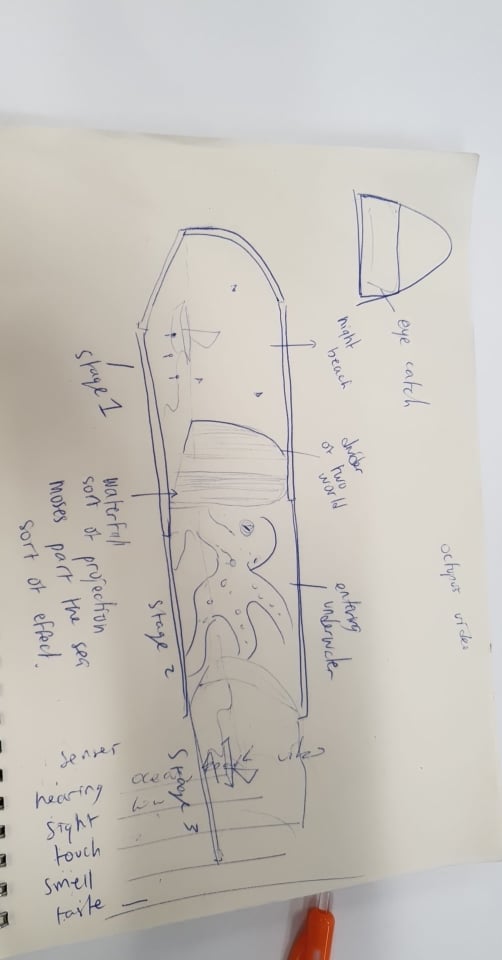 octopus video
eye catch
night
beach
divider
of two
world
entering
underwater
stage 1
waterfall
sort of projection
moses part the sea
sort of effect.
stage 2
Stage 3
video
ocean
hearing
sight
touch
smell
taste